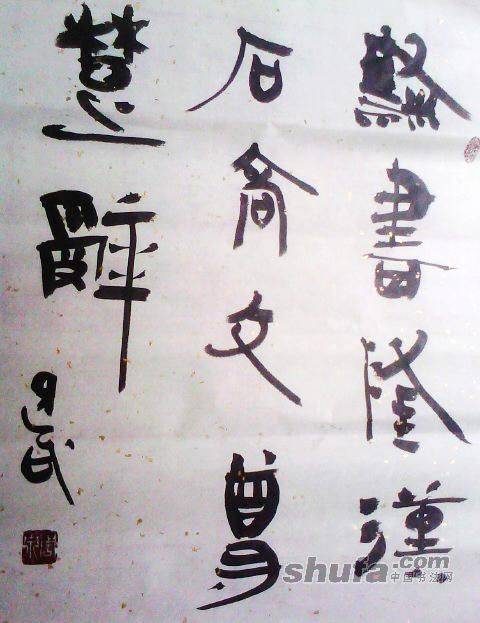 書隆漢
石文尊
楚辭
shufa.com
中国书法网